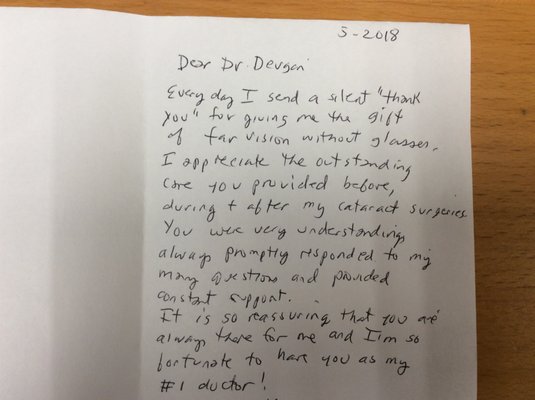 5-2018
Dear Dr. Devgan
Every day I send a silent "thank
you" for giving me the gift
of far vision without glasses.
I appreciate the outstanding
care you provided before,
during + after my cataract surgeries
You were very understanding,
always promptly responded to my
many questions and provided
constant support.
It is so reassuring that you are
always there for me and I'm so
fortunate to have you as my
#1 doctor!